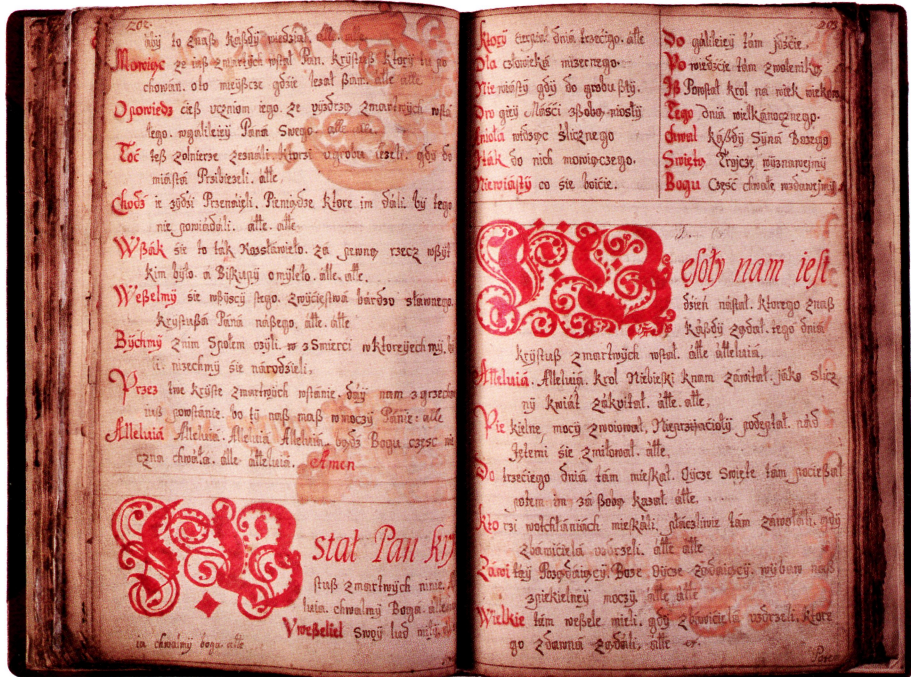 202.
aby to znaß kaßdy wiedział, alle, alle.
Mowiąc ze iuß zmartwych wstał Pan. krystuß ktory tu po
chowan. oto mieyßcze gdzie leżał ßam. alle alle
Opowiedz cieß uczniom iego. ze wyidrze zmartwych wsta
łego. w galileiey Pana Swego. alle. alle.
Toć teß żolnierze zeznali. ktorzi u grobu leżeli. gdy do
miasta Przibieżeli. alle.
Chodź ie zydzi Przenaięli. Pieniądze ktore im dali. by tego
nie powiadali. alle. alle.
Wßak sie to tak Rozsławieło. za pewną rzecz wßyt
kim było. a Bißkupy omyleło. alle. alle.
Weßelmy sie wßyscy stego. zwycięstwa bardzo sławnego.
krystußa Pana naßego. alle. alle
Bychmy znim społem ożyli. w z śmierci w ktoreyech my b
li. nizechmy sie narodzieli,
Przez twe kryste zmartwych wstanie. day nam z grzecho
powstanie. bo ty naß maß w moczy Panie: alle
Alleluia Alleluia. Alleluia Alleluia. bądź Bogu część wie
czna chwała. alle alleluia. Amen
Wstał Pan kry
stuß zmartwych ninie, A
luia. chwalmy Boga. allelu
Vweßelieł swoy lud miły, all
ia chwalmy boga. alle
203
ktory cierpiał dnia trzeciego. alle
Dla człowieka mizernego.
Niewiasty gdy do grobu ßły.
Dro giey Maści zßobą niosły
Anioła widząc ślicznego
Iak do nich mowiączego.
Niewiasty co sie boicie.
Do galileiey tam idzcie.
Powiedzcie tam zwolenikom
Iß Powstał krol na wiek wiekom
Tego dnia wielkanocznego.
chwal kaßdy Syna Bożego
Swiętą Troycze wyznawaymy
Bogu Cześć chwałe wzdawaymy
Wesoły nam iest
dzień nastał. ktorego znaß
kaßdy ządał. tego dnia
krystuß zmartwych wstał. alle alleluia,
Alleluia. Alleluia. krol Niebieski knam zawitał. jako slicz
ny kwiat zakwitał. alle. alle.
Pie kielne, mocy zwoiował, Nieprzyiacioły podeptał. nad
Jętemi sie zmiłował. alle,
Do trzeciego dnia tam mießkał. Oycze Święte tam pocießał
potem im za ßobą kazał. alle.
kto rzi wotchłaniach mießkali, płaczliwie tam zawołali, gdy
zbawiciela uwrzeli. alle alle
Zawi tay Boże Oycze wybaw naß
zpiekielney moczy alle alle
Wielkie tam wesele mieli. gdy zbawiciela uwrzeli, ktore
go zdawna żądali, alle